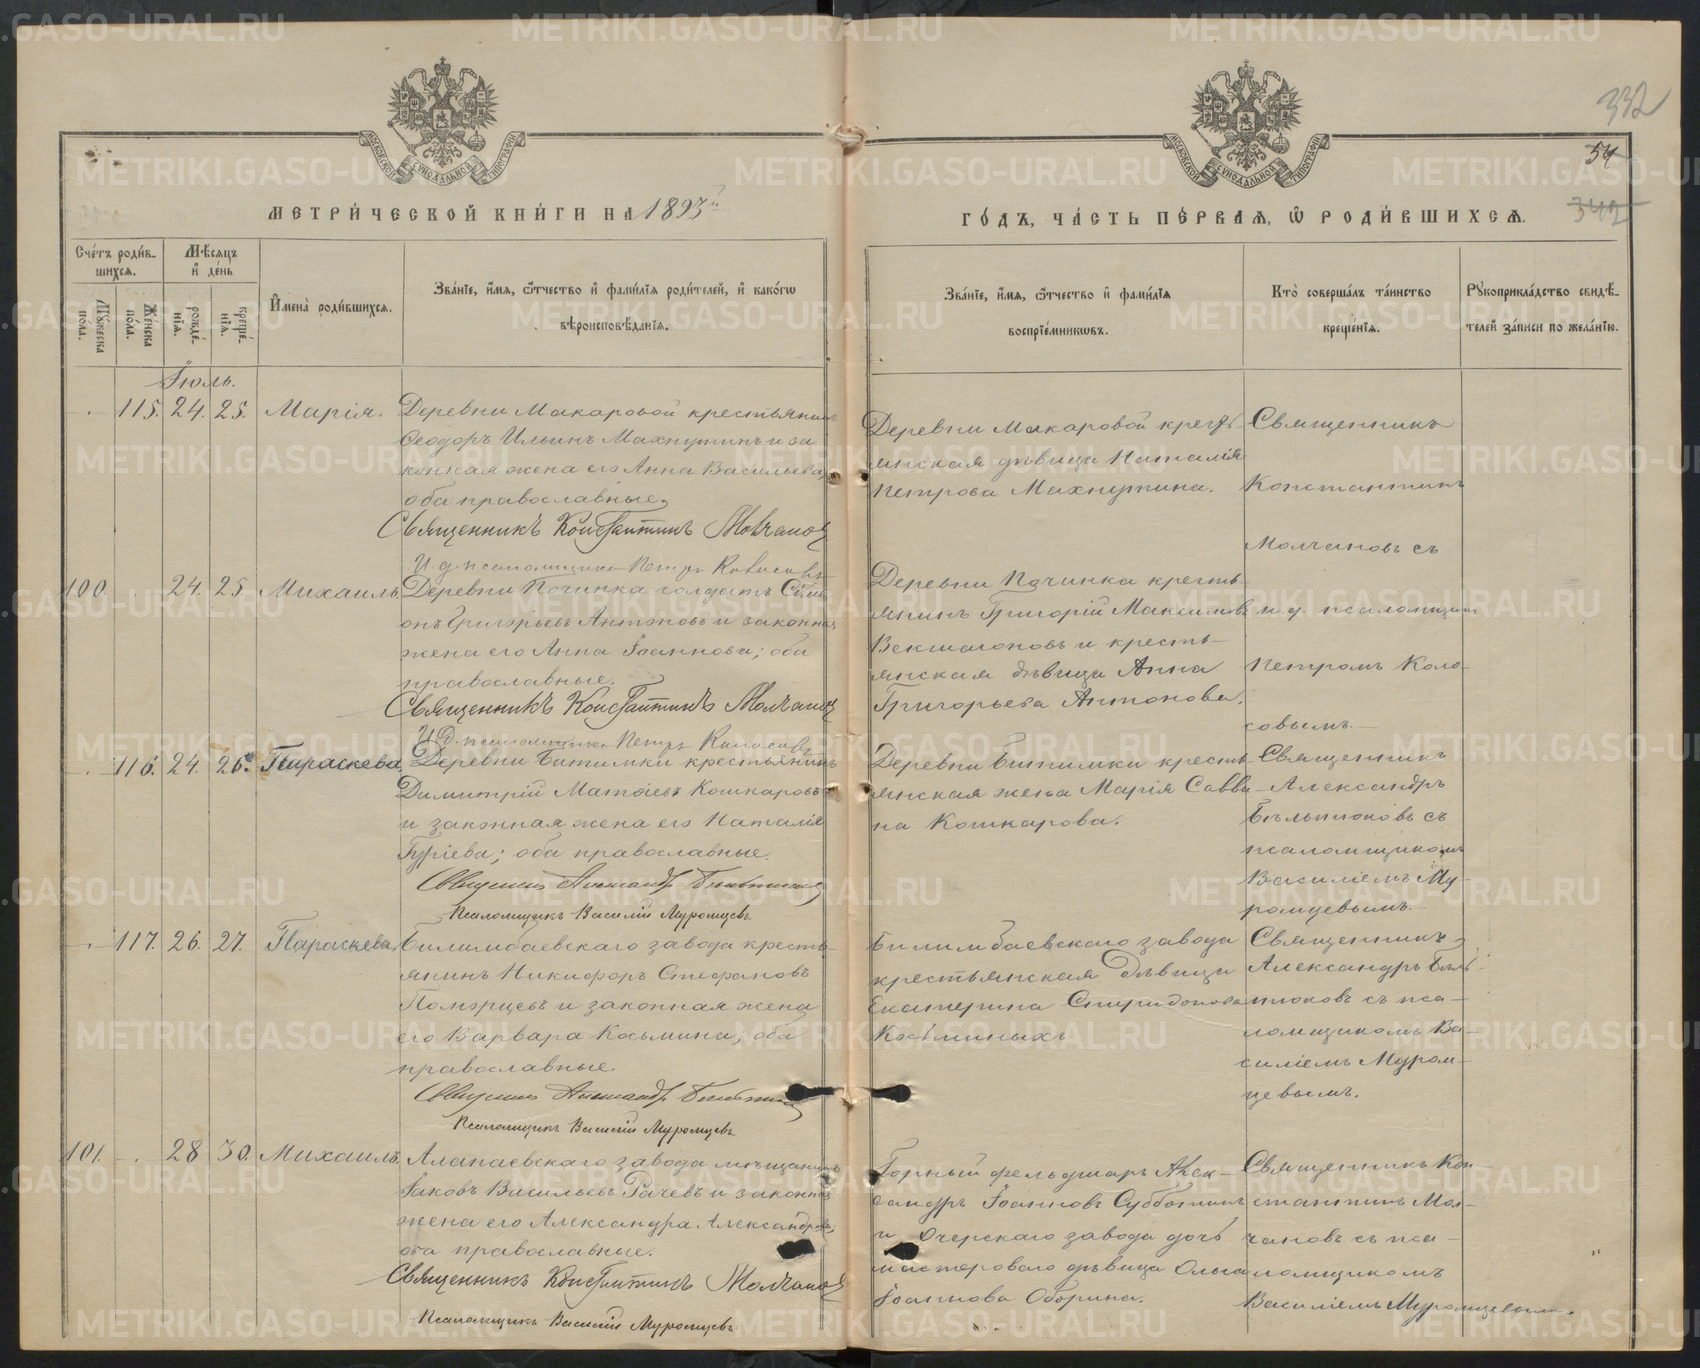 332
54
342
МЕТРИЧЕСКОЙ КНИГИ НА 1893й
ГОДЪ, ЧАСТЬ ПЕРВАЯ, Ѿ РОДИВШИХСЯ.
Счетъ родившихся.
Мужеска пола.
Женска пола.
Мѣсяцъ и день
рожденія.
крещенія.
Имена родившихся.
Званіе, имя, ѿтчество и фамилія родителей, и какогѡ
вѣроисповѣданія.
Званіе, имя, ѿтчество и фамилія
воспріемниковъ.
Кто совершалъ таинство
крещенія.
Рукоприкладство свидѣтелей записи по желанію.
Іюль.
115. 24. 25. Марія.
Деревни Макаровой крестьянинъ
Ѳеодоръ Ильинъ Махнутинъ и за
конная жена его Анна Васильева,
оба православные.
Священникъ Константинъ Молчановъ
И д. псаломщика Петръ Колосовъ
Деревни Макаровой кресть-
янская дѣвица Наталія
Петрова Махнутина.
Священникъ
Константинъ
Молчановъ съ
и. д. псаломщика
Петромъ Коло-
совымъ.
100. 24. 25. Михаилъ.
Деревни Починка солдатъ Симе
онъ Григорьевъ Антоновъ и законная
жена его Анна Іоаннова; оба
православные.
Священникъ Константинъ Молчановъ
И д. псаломщика Петръ Колосовъ
Деревни Починка кресть-
янинъ Григорій Максимовъ
и кресть-
янская дѣвица Анна
Григорьева Антонова.
116. 24. 26. Параскева
Деревни Битимки крестьянинъ
Димитрій Матѳіевъ Кошкаровъ
и законная жена его Наталія
Гуріева; оба православные.
Священникъ Александръ
Псаломщикъ Василій Муромцевъ
Деревни Битимки кресть-
янская жена Марія Савви-
на Кошкарова.
Священникъ
Александръ
съ
псаломщикомъ
Василіемъ Му-
ромцевымъ.
117. 26. 27. Параскева.
Билимбаевскаго завода кресть-
янинъ Никифоръ Стефановъ
Поморцевъ и законная жена
его Варвара Косьмина; оба
православные.
Священникъ Александръ
Псаломщикъ Василій Муромцевъ
Билимбаевскаго завода
крестьянская дѣвица
Екатерина Спиридонова
Косьминыхъ
Священникъ
Александръ
съ пса-
ломщикомъ Ва-
силіемъ Муром-
цевымъ.
101. 28 30. Михаилъ.
Алапаевскаго завода мѣщанинъ
Іаковъ Васильевъ Рачевъ и законная
жена его Александра Александрова;
оба православные.
Священникъ Константинъ Молчановъ
Псаломщикъ Василій Муромцевъ
Горный фельдшеръ Алек-
сандръ Іоанновъ Субботинъ
и Очерскаго завода дочь
мастероваго дѣвица Ольга
Іоаннова Оборина.
Священникъ Кон
стантинъ Мол-
чановъ съ пса-
ломщикомъ
Василіемъ Муромцевымъ.
METRIKI.GASO-URAL.RU